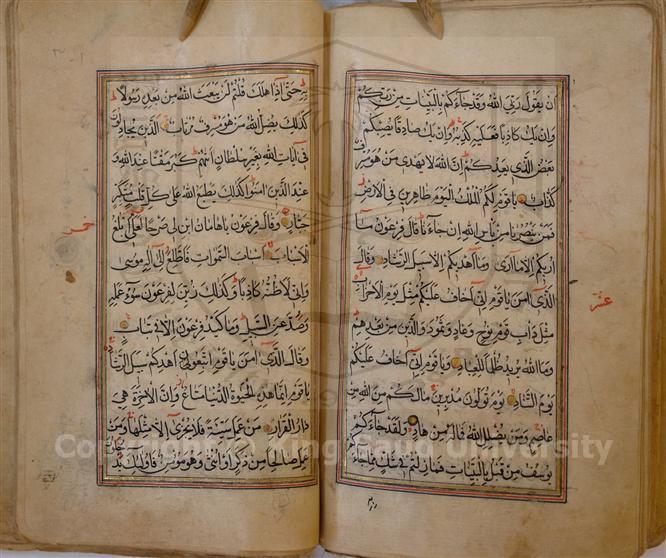 ان يقول ربي الله وقد جاءكم بالبينات من ربكم
وان يك كاذبا فعليه كذبه وان يك صادقا يصبكم
بعض الذي يعدكم ان الله لا يهدي من هو مسرف
كذاب يا قوم لكم الملك اليوم ظاهرين في الارض
فمن ينصرنا من باس الله ان جاءنا قال فرعون ما
اريكم الا ما ارى وما اهديكم الا سبيل الرشاد وقال
الذي امن يا قوم اني اخاف عليكم مثل يوم الاحزاب
مثل داب قوم نوح وعاد وثمود والذين من بعدهم
وما الله يريد ظلما للعباد ويا قوم اني اخاف عليكم
يوم التناد يوم تولون مدبرين ما لكم من الله من
عاصم ومن يضلل الله فما له من هاد ولقد جاءكم
يوسف من قبل بالبينات فما زلتم في شك مما جاءكم
عشر
به حتى اذا هلك قلتم لن يبعث الله من بعده رسولا
كذلك يضل الله من هو مسرف مرتاب الذين يجادلون
في ايات الله بغير سلطان اتيهم كبر مقتا عند الله و
عند الذين امنوا كذلك يطبع الله على كل قلب متكبر
جبار وقال فرعون يا هامان ابن لي صرحا لعلي ابلغ
الاسباب اسباب السموات فاطلع الى اله موسى
واني لاظنه كاذبا وكذلك زين لفرعون سوء عمله
وصد عن السبيل وما كيد فرعون الا في تباب
وقال الذي امن يا قوم اتبعون اهدكم سبيل الرشاد
يا قوم انما هذه الحيوة الدنيا متاع وان الاخرة هي
دار القرار من عمل سيئة فلا يجزى الا مثلها ومن
عمل صالحا من ذكر او انثى وهو مؤمن فاولئك يد
خمس
Copyright © King Saud University